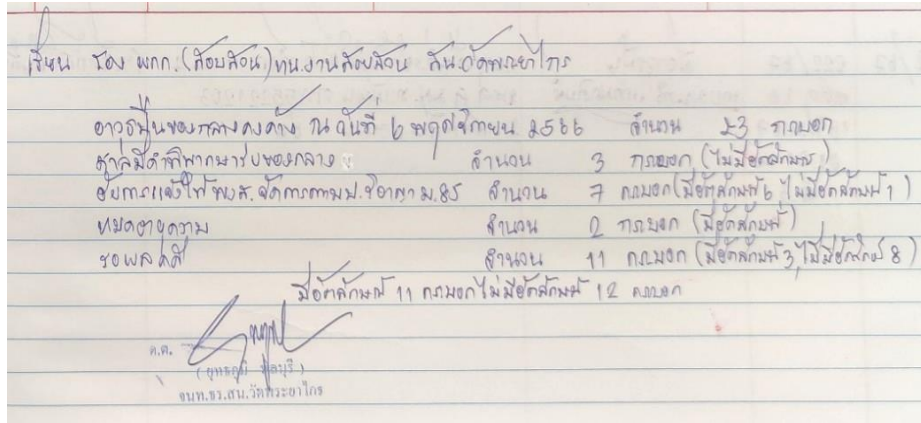 เรียน รอง ผกก.(สอบสวน)หน.งานสอบสวน สน.วัดพระยาไกร
อาวุธปืนของกลางคงค้าง ณ วันที่ 6 พฤศจิกายน 2566 จำนวน 23 กระบอก
ศาลมีคำพิพากษาริบของกลาง จำนวน 3 กระบอก (ไม่มีอัตลักษณ์)
อัยการแจ้งให้ พงส.จัดการตามป.วิอาญา ม.85 จำนวน 7 กระบอก (มีอัตลักษณ์ 6 ไม่มีอัตลักษณ์ 1)
หมดอายุความ จำนวน 2 กระบอก (มีอัตลักษณ์)
รอผลคดี จำนวน 11 กระบอก (มีอัตลักษณ์ 3, ไม่มีอัตลักษณ์ 8)
มีอัตลักษณ์ 11 กระบอก ไม่มีอัตลักษณ์ 12 กระบอก
ด.ต.
สน.วัดพระยาไกร